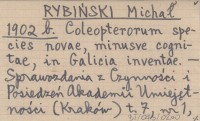 RYBIŃSKI Michał
1902 b. Coleopterorum spe-
cies novae, minusve cogni-
tae, in Galicia inventae. —
Sprawozdania z Czynności i
Posiedzeń Akademii Umiejęt-
ności (Kraków) t. 7, nr 1,